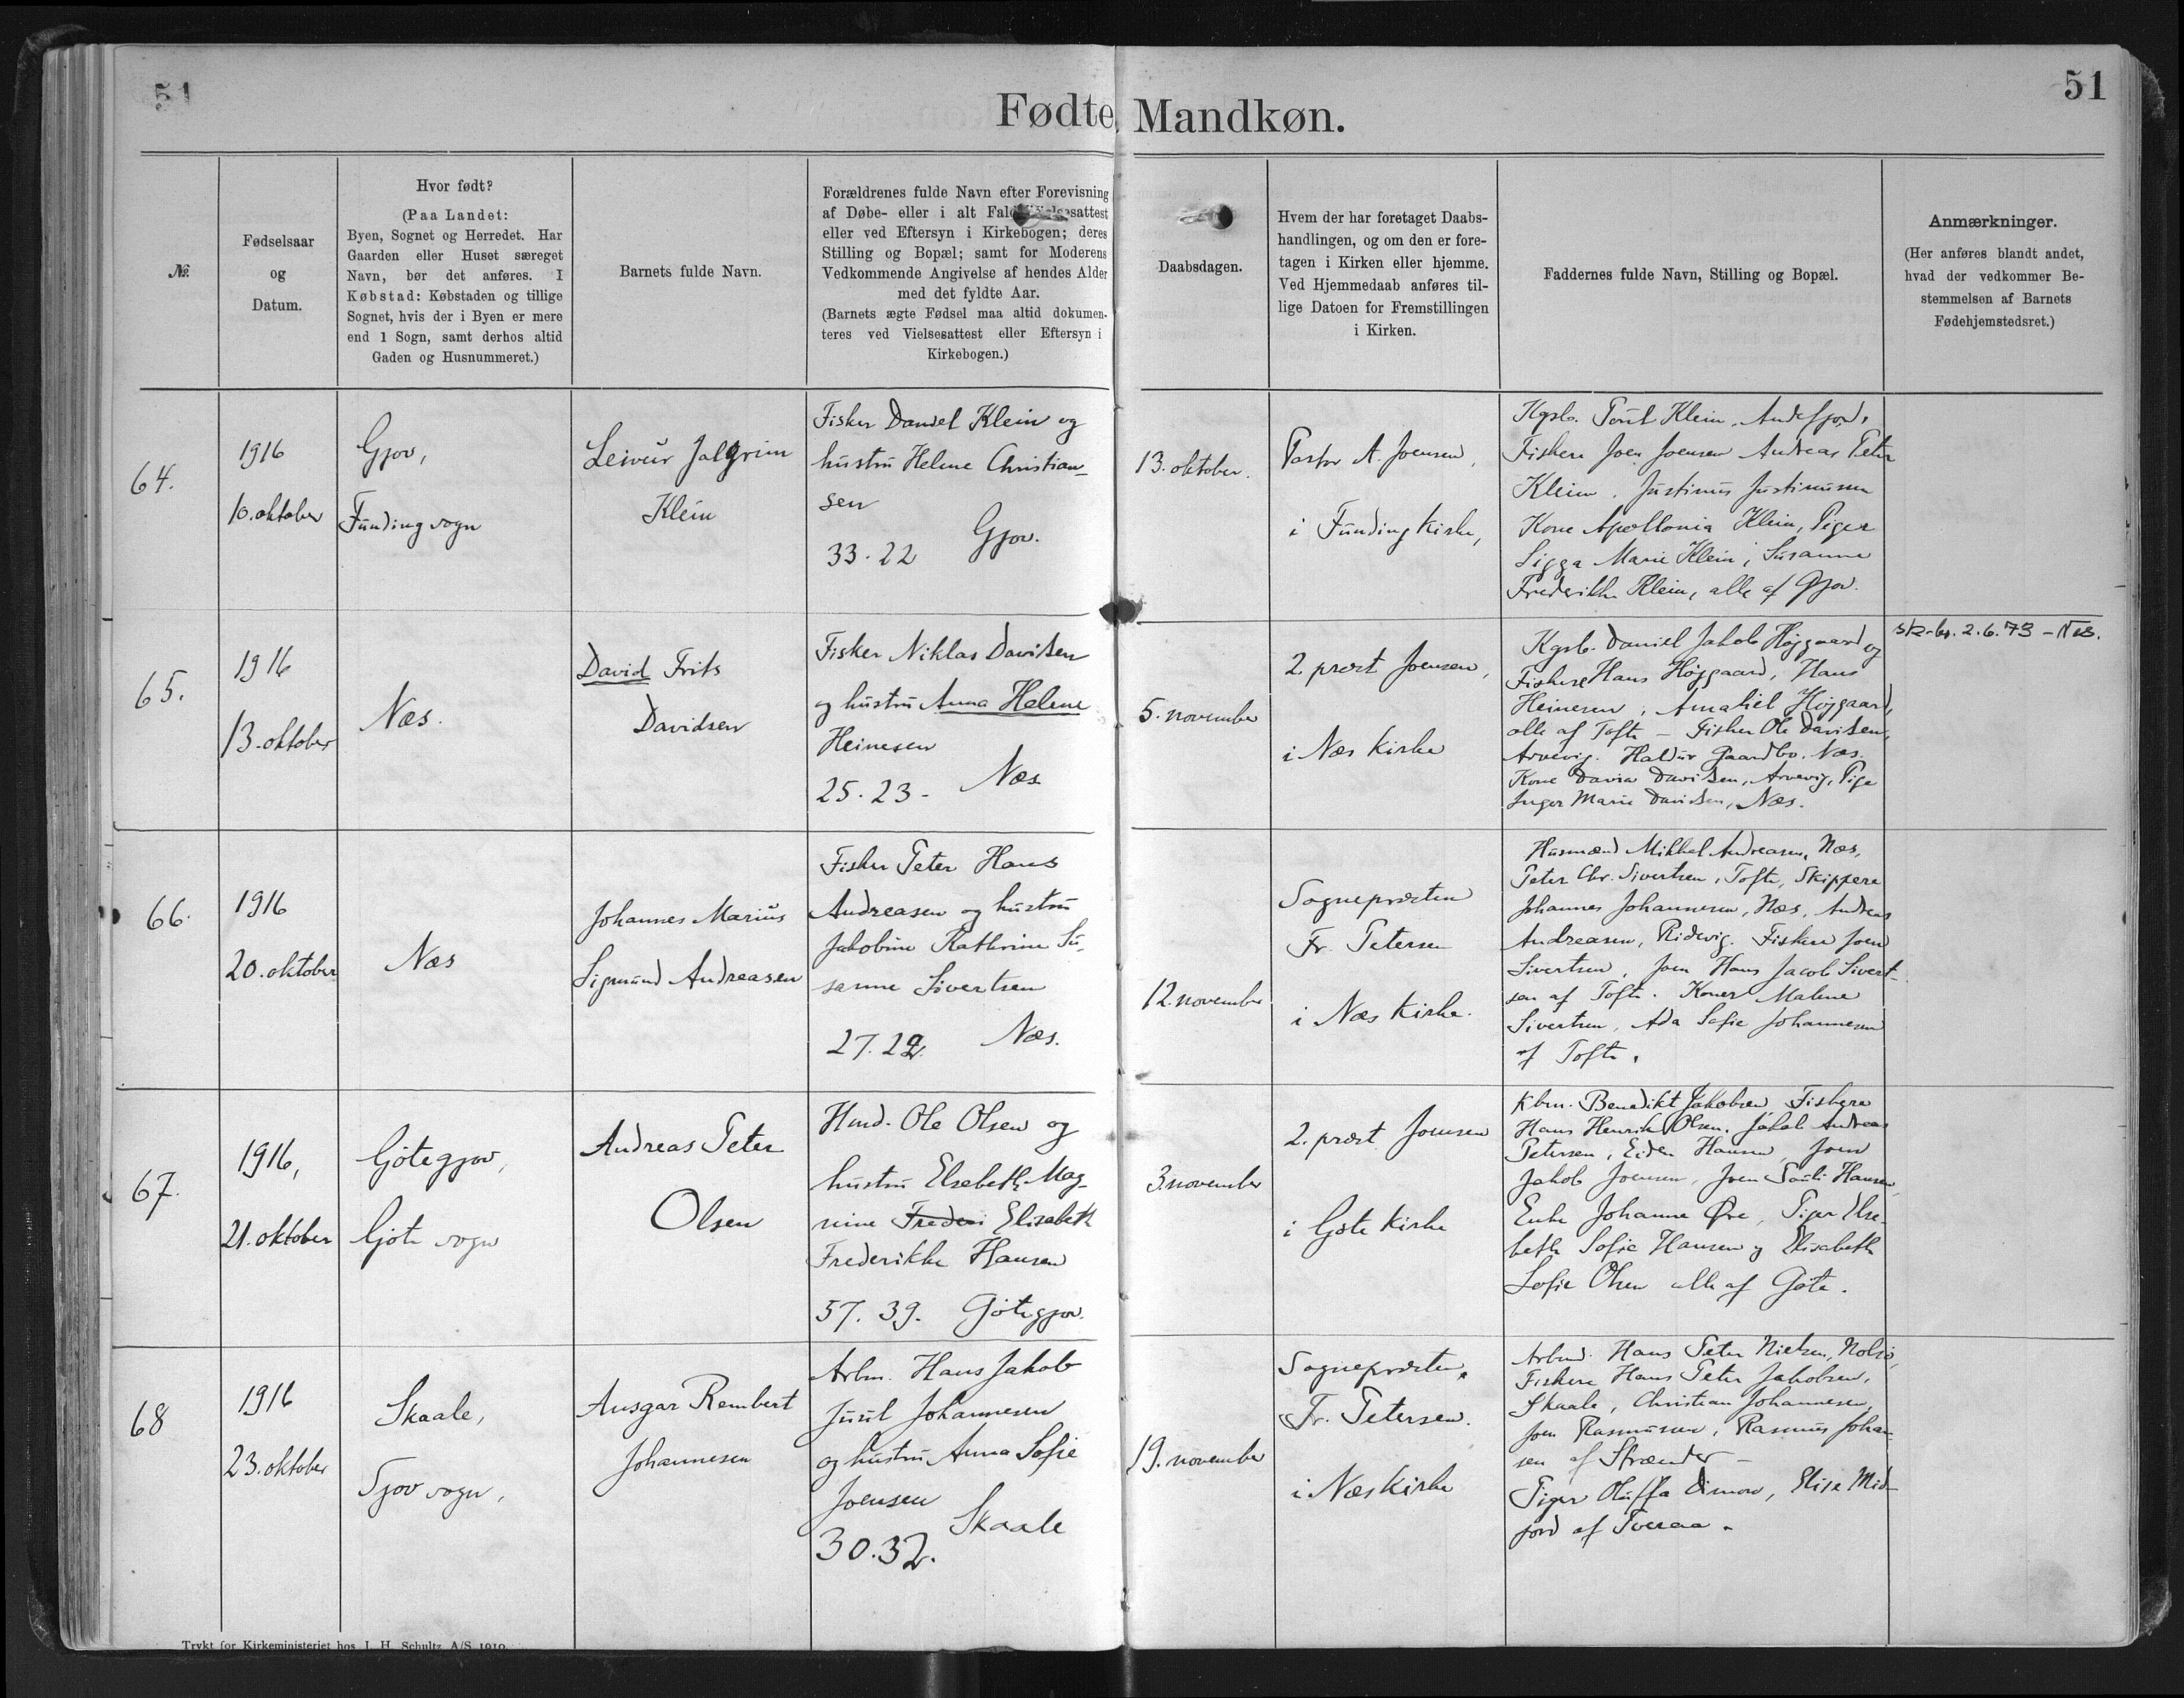 51
51
Fødte Mandkøn.
№.
Fødselsaar
og
Datum.
Hvor født?
(Paa Landet:
Byen, Sognet og Herredet. Har
Gaarden eller Huset særeget
Navn, bør det anføres. I
Købstad: Købstaden og tillige
Sognet, hvis der i Byen er mere
end 1 Sogn, samt derhos altid
Gaden og Husnummeret.)
Barnets fulde Navn.
Forældrenes fulde Navn efter Forevisning
af Døbe- eller i alt Fald Vielsesattest
eller ved Eftersyn i Kirkebogen; deres
Stilling og Bopæl; samt for Moderens
Vedkommende Angivelse af hendes Alder
med det fyldte Aar.
(Barnets ægte Fødsel maa altid dokumen-
teres ved Vielsesattest eller Eftersyn i
Kirkebogen.)
Daabsdagen.
Hvem der har foretaget Daabs-
handlingen, og om den er fore-
tagen i Kirken eller hjemme.
Ved Hjemmedaab anføres til-
lige Datoen for Fremstillingen
i Kirken.
Faddernes fulde Navn, Stilling og Bopæl.
Anmærkninger.
(Her anføres blandt andet,
hvad der vedkommer Be-
stemmelsen af Barnets
Fødehjemstedsret.)
64.
1916
10. oktober
Gjov,
Funding sogn
Leivur Jalgrim
Klein
Fisker Daniel Klein og
hustru Helene Christian-
sen
33. 22 Gjov.
13. oktober.
Pastor A. Joensen,
i Funding Kirke,
Kgsb. Poul Klein, Andefjord,
Fiskere Joen Joensen Andreas Peter
Klein, Justinus Justinussen
Kone Apollonia Klein, Piger
Sigga Marie Klein, Susanne
Frederikke Klein, alle af Gjov.
65.
1916
13. oktober
Næs.
David Frits
Davidsen
Fisker Niklas Davidsen
og hustru Anna Helene
Heinesen
25. 23 - Næs
5. november
2. præst Joensen,
i Næs Kirke
Kgsb. Daniel Jakob Højgaard og
Fiskere Hans Højgaard, Hans
Heinesen, Amaliel Højgaard,
alle af Tofte - Fisker Ole Davidsen,
Arnevig. Haldur Gaardbo, Næs.
Kone Davia Davidsen, Arnevig, Pige
Inger Marie Davidsen, Næs.
2.6.73 - Næs.
66.
1916
20. oktober
Næs
Johannes Marius
Sigmund Andreasen
Fisker Peter Hans
Andreasen og hustru
Jakobine Kathrine Su-
sanne Sivertsen
27. Næs.
12. november
Sognepræsten
Fr. Petersen
i Næs Kirke.
Husmænd Mikkel Andreasen, Næs,
Peter Chr. Sivertsen, Tofte, Skippere
Johannes Johannesen, Næs, Andreas
Andreasen, Ridevig. Fiskere Joen
Sivertsen, Joen Hans Jacob Sivert-
sen af Tofte. Koner Malene
Sivertsen, Ada Sofie Johannesen
af Tofte.
67.
1916,
21. oktober
Gøtegjov,
Gøte sogn
Andreas Peter
Olsen
Hmd. Ole Olsen og
hustru Elsebeth Mag-
nine Frederi Elisabeth
Frederikke Hansen
57. 39. Gøtegjov.
3. november
2. præst Joensen
i Gøte Kirke
Kbm. Benedikt Jakobsen, Fiskere
Hans Henrik Olsen, Jakob Andreas
Petersen, Hansen, Joen
Jakob Joensen, Joen Pauli Hansen,
Enke Johanne Øre, Piger Else-
beth Sofie Hansen og Elisabeth
Sofie Olsen alle af Gøte.
68
1916
23. oktober
Skaale,
Sjov sogn,
Ansgar Rembert
Johannesen
Arbm. Hans Jakob
Juul Johannesen
og hustru Anna Sofie
Joensen
30. 32. Skaale
19. november
Sognepræsten,
Fr. Petersen.
i Næs Kirke
Arbmd. Hans Peter Nielsen, Nolsø,
Fiskere Hans Peter Jakobsen,
Skaale, Christian Johannesen,
Joen Rasmussen, Rasmus Johan-
sen af Strænder -
Piger Oluffa Dimon, Elise Mid-
jord af Tveraa.
Trykt for Kirkeministeriet hos J. H. Schultz A/S 1910.